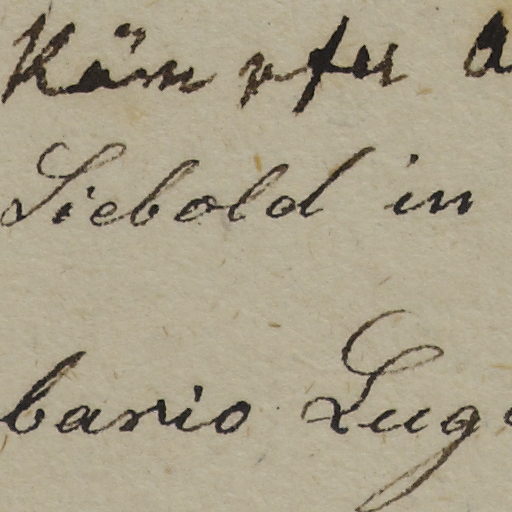 Kämpfer A
Siebold in
bario Lug